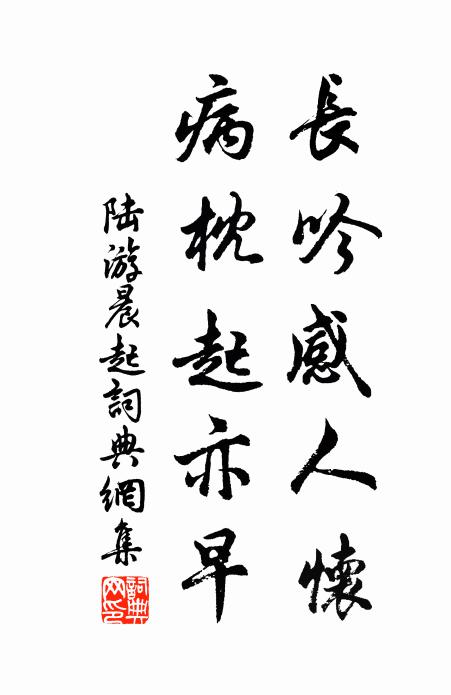 長吟感人懷
病枕起亦早
陸游晨起詞典網集
詞典網印